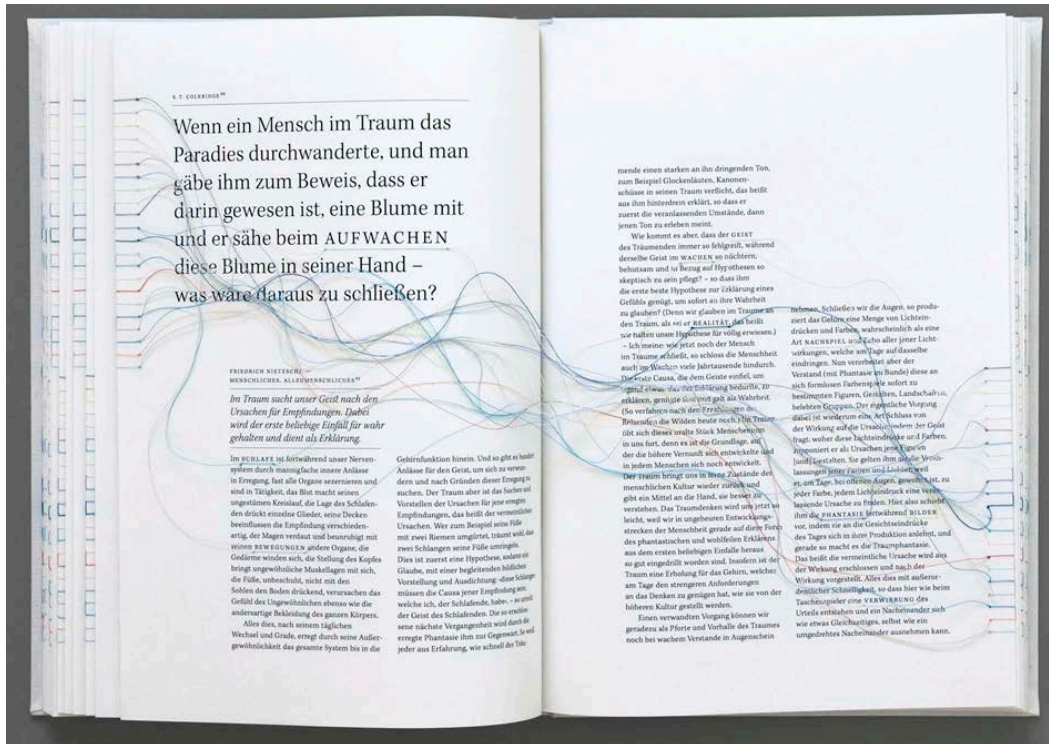 S. T. COLERIDGE
Wenn ein Mensch im Traum das
Paradies durchwanderte, und man
gäbe ihm zum Beweis, dass er
darin gewesen ist, eine Blume mit
und er sähe beim AUFWACHEN
diese Blume in seiner Hand –
was wäre daraus zu schließen?
FRIEDRICH NIETZSCHE —
MENSCHLICHES, ALLZUMENSCHLICHES
Im Traum sucht unser Geist nach den
Ursachen für Empfindungen. Dabei
wird der erste beliebige Einfall für wahr
gehalten und dient als Erklärung.
Im SCHLAFE ist fortwährend unser Nerven-
system durch mannigfache innere Anlässe
in Erregung, fast alle Organe sezernieren und
sind in Tätigkeit, das Blut macht seinen
ungestümen Kreislauf, die Lage des Schlafen-
den drückt einzelne Glieder, seine Decken
beeinflussen die Empfindung verschieden-
artig, der Magen verdaut und beunruhigt mit
seinen BEWEGUNGEN andere Organe, die
Gedärme winden sich, die Stellung des Kopfes
bringt ungewöhnliche Muskellagen mit sich,
die Füße, unbeschuht, nicht mit den
Sohlen den Boden drückend, verursachen das
Gefühl des Ungewöhnlichen ebenso wie die
andersartige Bekleidung des ganzen Körpers.
Alles dies, nach seinem täglichen
Wechsel und Grade, erregt durch seine Außer-
gewöhnlichkeit das gesamte System bis in die
Gehirnfunktion hinein. Und so gibt es hundert
Anlässe für den Geist, um sich zu verwun-
dern und nach Gründen dieser Erregung zu
suchen. Der Traum aber ist das Suchen und
Vorstellen der Ursachen für jene erregten
Empfindungen, das heißt der vermeintlichen
Ursachen. Wer zum Beispiel seine Füße
mit zwei Riemen umgürtet, träumt wohl, dass
zwei Schlangen seine Füße umringeln.
Dies ist zuerst eine Hypothese, sodann ein
Glaube, mit einer begleitenden bildlichen
Vorstellung und Ausdichtung: ›diese Schlangen
müssen die Causa jener Empfindung sein,
welche ich, der Schlafende, habe‹, – so urteilt
der Geist des Schlafenden. Die so erschlos-
sene nächste Vergangenheit wird durch die
erregte Phantasie ihm zur Gegenwart. So weiß
jeder aus Erfahrung, wie schnell der Träu-
mende einen starken an ihn dringenden Ton,
zum Beispiel Glockenläuten, Kanonen-
schüsse in seinen Traum verflicht, das heißt
aus ihm hinterdrein erklärt, so dass er
zuerst die veranlassenden Umstände, dann
jenen Ton zu erleben meint.
Wie kommt es aber, dass der GEIST
des Träumenden immer so fehlgreift, während
derselbe Geist im WACHEN so nüchtern,
behutsam und in Bezug auf Hypothesen so
skeptisch zu sein pflegt? – so dass ihm
die erste beste Hypothese zur Erklärung eines
Gefühls genügt, um sofort an ihre Wahrheit
zu glauben? (Denn wir glauben im Traume an
den Traum, als sei er REALITÄT, das heißt
wir halten unsre Hypothese für völlig erwiesen.)
– Ich meine: wie jetzt noch der Mensch
im Traume schließt, so schloss die Menschheit
auch im Wachen viele Jahrtausende hindurch.
Die erste Causa, die dem Geiste einfiel, um
irgend etwas, das der Erklärung bedurfte, zu
erklären, genügte ihm und galt als Wahrheit.
(So verfahren nach den Erzählungen der
Reisenden die Wilden heute noch.) Im Traum
übt sich dieses uralte Stück Menschentum
in uns fort, denn es ist die Grundlage, auf
der die höhere Vernunft sich entwickelte und
in jedem Menschen sich noch entwickelt.
Der Traum bringt uns in ferne Zustände der
menschlichen Kultur wieder zurück und
gibt ein Mittel an die Hand, sie besser zu
verstehen. Das Traumdenken wird uns jetzt so
leicht, weil wir in ungeheuren Entwicklungs-
strecken der Menschheit gerade auf diese Form
des phantastischen und wohlfeilen Erklärens
aus dem ersten beliebigen Einfalle heraus
so gut eingedrillt worden sind. Insofern ist der
Traum eine Erholung für das Gehirn, welches
am Tage den strengeren Anforderungen
an das Denken zu genügen hat, wie sie von der
höheren Kultur gestellt werden.
Einen verwandten Vorgang können wir
geradezu als Pforte und Vorhalle des Traumes
noch bei wachem Verstande in Augenschein
nehmen. Schließen wir die Augen, so produ-
ziert das Gehirn eine Menge von Lichtein-
drücken und Farben, wahrscheinlich als eine
Art NACHSPIEL und Echo aller jener Licht-
wirkungen, welche am Tage auf dasselbe
eindringen. Nun verarbeitet aber der
Verstand (mit Phantasie im Bunde) diese an
sich formlosen Farbenspiele sofort zu
bestimmten Figuren, Gestalten, Landschaften,
belebten Gruppen. Der eigentliche Vorgang
dabei ist wiederum eine Art Schluss von
der Wirkung auf die Ursache; indem der Geist
fragt: woher diese Lichteindrücke und Farben,
supponiert er als Ursachen jene Figuren
[und] Gestalten. Sie gelten ihm als die Veran-
lassungen jener Farben und Lichter, weil
er, am Tage, bei offenen Augen, gewohnt ist, zu
jeder Farbe, jedem Lichteindruck eine veran-
lassende Ursache zu finden. Hier also schiebt
ihm die PHANTASIE fortwährend BILDER
vor, indem sie an die Gesichtseindrücke
des Tages sich in ihrer Produktion anlehnt, und
gerade so macht es die Traumphantasie.
Das heißt die vermeintliche Ursache wird aus
der Wirkung erschlossen und nach der
Wirkung vorgestellt. Alles dies mit außeror-
dentlicher Schnelligkeit, so dass hier wie beim
Taschenspieler eine VERWIRRUNG des
Urteils entstehen und ein Nacheinander sich
wie etwas Gleichzeitiges, selbst wie ein
umgedrehtes Nacheinander ausnehmen kann.